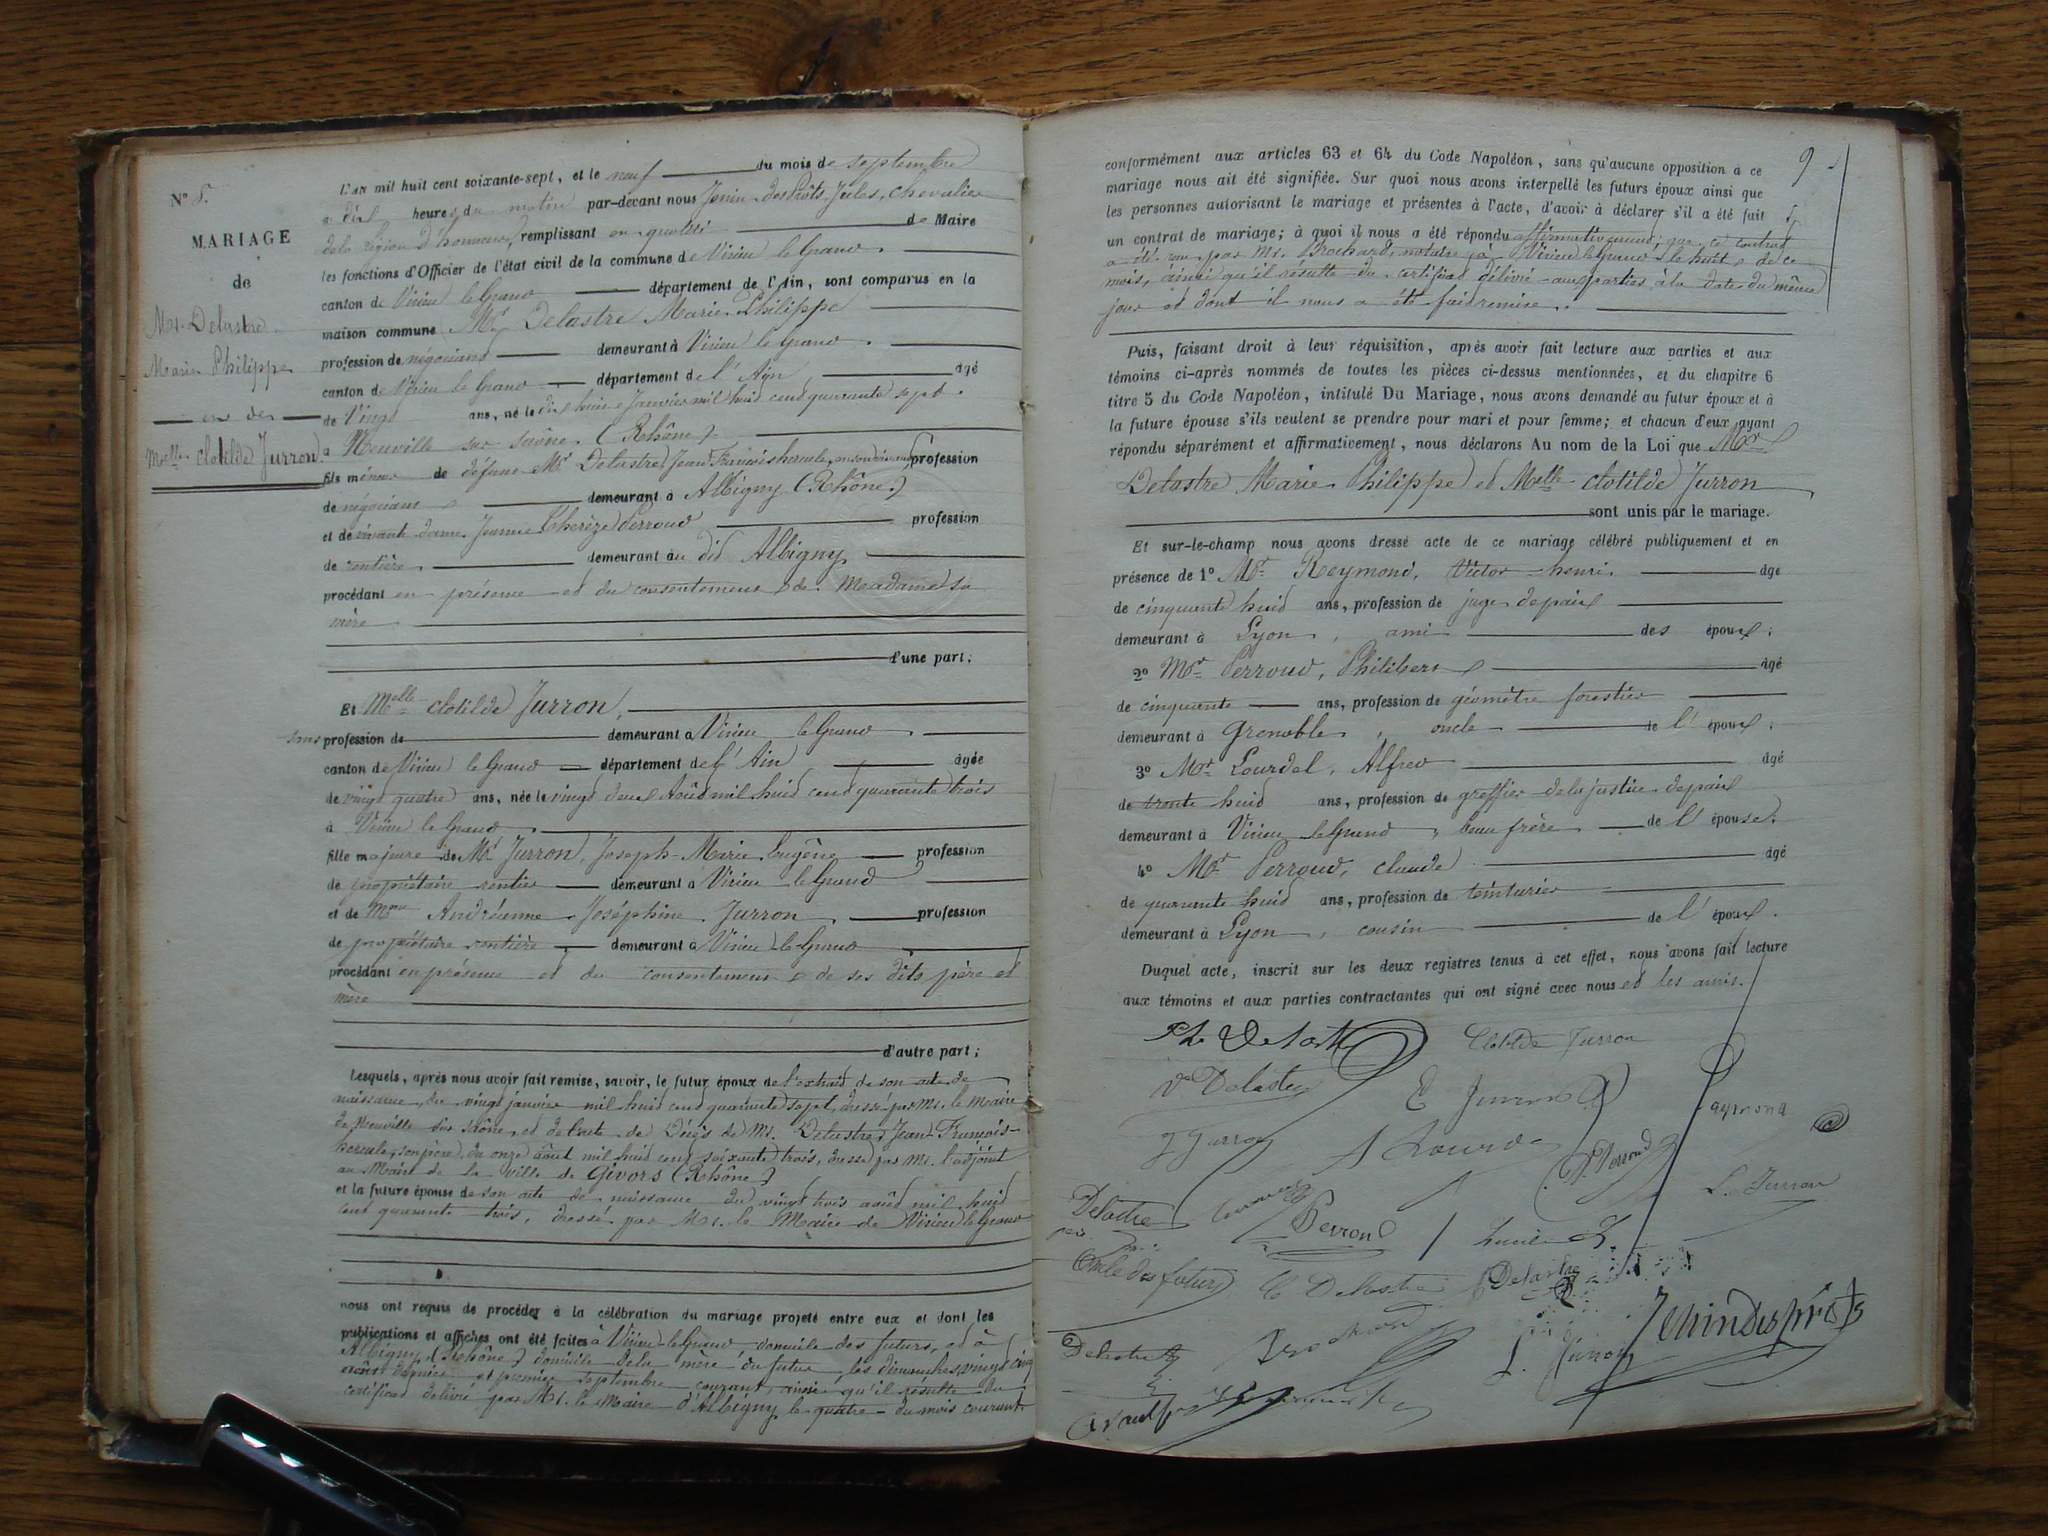 N° 8.
MARIAGE
de
Mr. Delastre
Marie Philippe
et de
Melle clotilde Jurron
L'an mil huit cent soixante-sept, et le neuf du mois de septembre
à dix heures du matin par-devant nous Jules, chevalier
de la légion d'honneur, remplissant en qualité de Maire
les fonctions d'Officier de l'état civil de la commune de Virieu le Grand.
canton de Virieu le Grand département de l'Ain, sont comparus en la
maison commune Mr Delastre Marie Philippe
profession de négociant demeurant à Virieu le Grand.
canton de Virieu le Grand département de l'Ain âgé
de Vingt ans, né le dix huit Janvier mil huit cent quarante sept.
à Neuville sur Saône. (Rhône)
fils mineur de défunt Mr Delastre Jean François hercule, en son vivant profession
de négociant demeurant à Albigny (Rhône)
et de vivante dame Jeanne Thérèze Perroud profession
de rentière. demeurant au dit Albigny
procédant en présence et du consentement de Madame sa
mère
d'une part;
Et Melle clotilde Jurron,
sans profession de demeurant à Virieu le Grand
canton de Virieu le Grand département de l'Ain âgée
de vingt quatre ans, née le vingt deux Août mil huit cent quarante trois
à Virieu le Grand
fille majeure de Mr Jurron, Joseph Marie Eugène profession
de propriétaire rentier demeurant à Virieu le Grand
et de Mme Andréanne Joséphine Jurron profession
de propriétaire rentière demeurant à Virieu le Grand
procédant en présence et du consentement de ses dits père et
mère
d'autre part;
Lesquels, après nous avoir fait remise, savoir, le futur époux de l'extrait de son acte de
naissance, du vingt janvier mil huit cent quarante sept, dressé par Mr. le Maire
de Neuville sur Saône, et de l'acte de Décès de Mr. Delastre, Jean François
hercule, son père, du onze août mil huit cent soixante trois, dressé par Mr. l'adjoint
au Maire de la ville de Givors (Rhône)
et la future épouse de son acte de naissance du vingt trois août mil huit
cent quarante trois, dressé par Mr. le Maire de Virieu le Grand
nous ont requis de procéder à la célébration du mariage projeté entre eux et dont les
publications et affiches ont été faites à Virieu le Grand, domicile des futurs, et à
Albigny (Rhône) domicile de la mère du futur, les dimanches vingt cinq
août dernier et premier septembre courant, ainsi qu'il résulte du
certificat délivré par Mr. le Maire d'Albigny le quatre du mois courant
9
conformément aux articles 63 et 64 du Code Napoléon, sans qu'aucune opposition à ce
mariage nous ait été signifiée. Sur quoi nous avons interpellé les futurs époux ainsi que
les personnes autorisant le mariage et présentes à l'acte, d'avoir à déclarer s'il a été fait
un contrat de mariage; à quoi il nous a été répondu affirmativement; que ce contrat
a été reçu par Mr. Brochard, notaire à Virieu le Grand le huit de ce
mois, ainsi qu'il résulte du certificat délivré aux parties à la date du même
jour et dont il nous a été fait remise.
Puis, faisant droit à leur réquisition, après avoir fait lecture aux parties et aux
témoins ci-après nommés de toutes les pièces ci-dessus mentionnées, et du chapitre 6
titre 5 du Code Napoléon, intitulé Du Mariage, nous avons demandé au futur époux et à
la future épouse s'ils veulent se prendre pour mari et pour femme; et chacun d'eux ayant
répondu séparément et affirmativement, nous déclarons Au nom de la Loi que Mr
Delastre Marie Philippe et Melle clotilde Jurron
sont unis par le mariage.
Et sur-le-champ nous avons dressé acte de ce mariage célébré publiquement et en
présence de 1° Mr Reymond, Victor henri âgé
de cinquante huit ans, profession de juge de paix
demeurant à Lyon, ami des époux;
2° Mr Perroud, Philibert âgé
de cinquante ans, profession de géomètre forestier
demeurant à Grenoble, oncle de l'époux;
3° Mr Lourdel, Alfred âgé
de trente huit ans, profession de greffier de la justice de paix
demeurant à Virieu le Grand, beau frère de l'épouse;
4° Mr Perroud, claude âgé
de quarante huit ans, profession de teinturier
demeurant à Lyon, cousin de l'époux.
Duquel acte, inscrit sur les deux registres tenus à cet effet, nous avons fait lecture
aux témoins et aux parties contractantes qui ont signé avec nous et les amis.
Ph Delastre Clotilde Jurron
Ve Delastre E Jurron Raymond
J Jurron A Lourdel P. Perroud
Delastre Perroud L. Jurron
Oncle des futurs C Delastre Delastre
Delastre Brochard L. Jurron